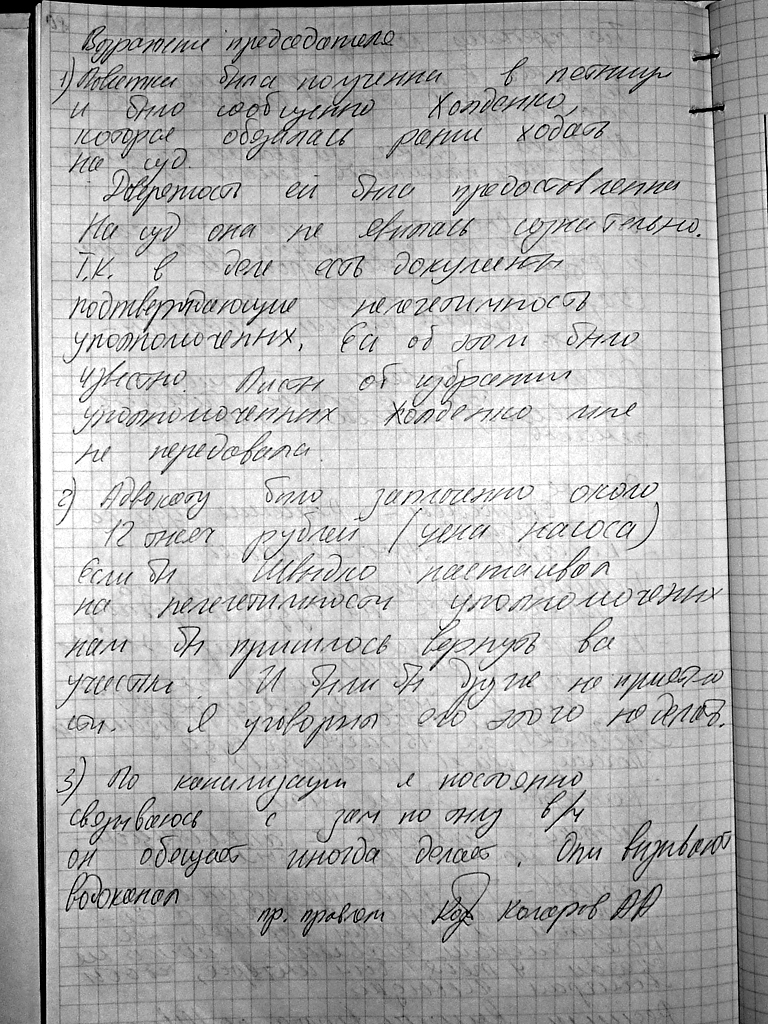 Возражение председателя
1) Повестка была полученна в пятницу
и было сообщенно Холденко,
которая обязалась раньше ходать
на суд.
Доверенность ей была предоставленна
На суд она не явилась сознательно.
Т.К. в деле есть документы
подтверждающие нелегетимность
уполномоченных. Ей об этом было
известно. Листы об избрании
уполномоченных Холденко мне
не передавала.
2) Адвокату было заплоченно около
12 тысяч рублей (цена насоса)
Если бы Швыдко настаивал
на нелегетимности уполномоченных
нам бы пришлось вернуть все
участки. И были бы другие неприятно
сти. Я уговорил его этого не делать.
3) По канилизации я постоянно
связываюсь с зам по тылу в/ч
он обещает иногда делает. Они визывают
водоканал
пр. правлен Комаров АА